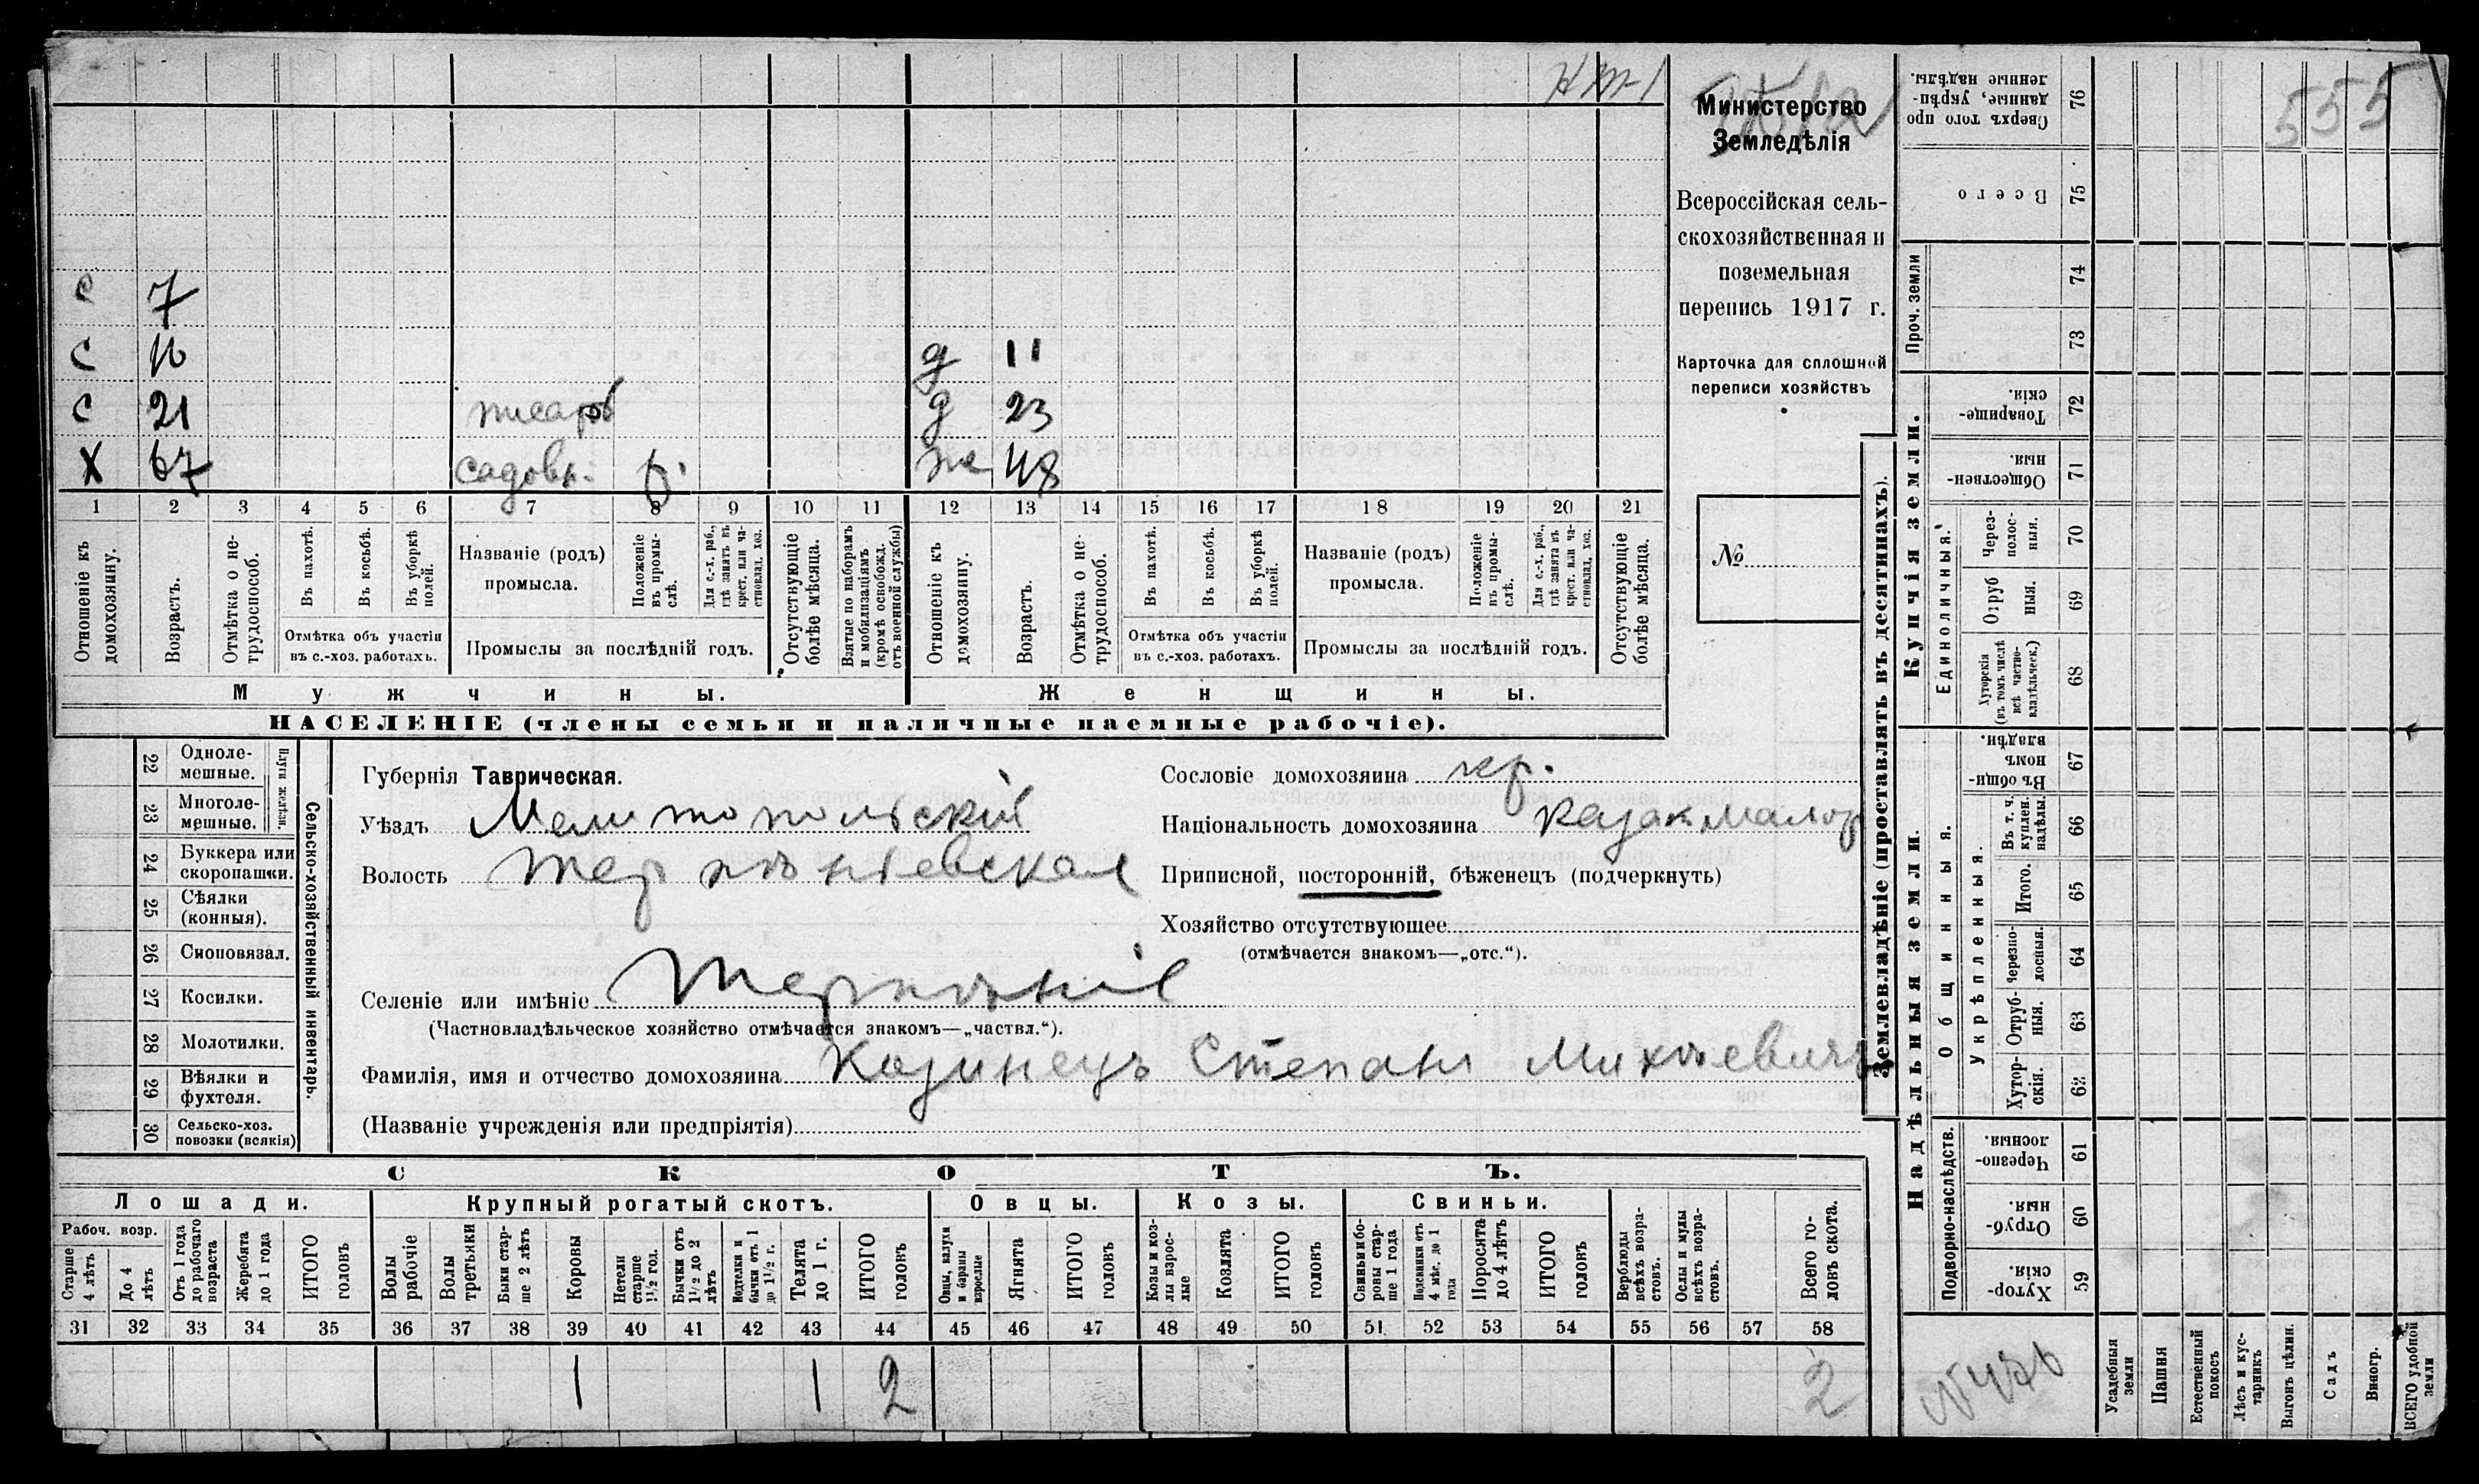 555
Министерство
Земледѣлія
Всероссійская сель-
скохозяйственная и
поземельная
перепись 1917 г.
Карточка для сплошной
переписи хозяйствъ
№
с 7
с 16 д 11
с 21 писарь д 23
х 67 садовн. р. ж 48
1 2 3 4 5 6 7 8 9 10 11 12 13 14 15 16 17 18 19 20 21
Отношеніе къ домохозяину.
Возрастъ.
Отмѣтка о не-трудоспособ.
Въ пахотѣ.
Въ косьбѣ.
Въ уборкѣ полей.
Отмѣтка объ участіи
въ с.-хоз. работахъ.
Названіе (родъ)
промысла.
Положеніе въ промы-слѣ.
Для с.-х. раб., гдѣ занятъ въ крест. или ча-стновлад. хоз.
Промыслы за послѣдній годъ.
Отсутствующіе болѣе мѣсяца.
Взятые по наборамъ и мобилизаціямъ (кромѣ освобожд. отъ военной службы)
Отношеніе къ домохозяину.
Возрастъ.
Отмѣтка о не-трудоспособ.
Въ пахотѣ.
Въ косьбѣ.
Въ уборкѣ полей.
Отмѣтка объ участіи
въ с.-хоз. работахъ.
Названіе (родъ)
промысла.
Положеніе въ промы-слѣ.
Для с.-х. раб., гдѣ занята въ крест. или ча-стновлад. хоз.
Промыслы за послѣдній годъ.
Отсутствующіе болѣе мѣсяца.
Мужчины. Женщины.
НАСЕЛЕНІЕ (члены семьи и наличные наемные рабочіе).
22 Одноле-мешные.
23 Многоле-мешные.
Плуги желѣзн.
24 Буккера или скоропашки.
25 Сѣялки (конныя).
26 Сноповязал.
27 Косилки.
28 Молотилки.
29 Вѣялки и фухтеля.
30 Сельско-хоз. повозки (всякія)
Сельско-хозяйственный инвентарь.
Губернія Таврическая.
Уѣздъ Мелитопольскій
Волость Терпѣніевская
Селеніе или имѣніе Терпѣніе
(Частновладѣльческое хозяйство отмѣчается знакомъ—„частвл.“).
Фамилія, имя и отчество домохозяина Козинецъ Степанъ
(Названіе учрежденія или предпріятія)
Сословіе домохозяина кр.
Національность домохозяина казак малор
Приписной, посторонній, бѣженецъ (подчеркнуть)
Хозяйство отсутствующее
(отмѣчается знакомъ—„отс.“).
СКОТЪ.
Лошади. Крупный рогатый скотъ. Овцы. Козы. Свиньи.
Рабоч. возр.
Старше 4 лѣтъ
До 4 лѣтъ
Отъ 1 года до рабочаго возраста
Жеребята до 1 года
ИТОГО головъ
Волы рабочіе
Волы третьяки
Быки стар-ше 2 лѣтъ
Коровы
Нетели старше 1½ год.
Бычки отъ 1½ до 2 лѣтъ
Телята до 1 г.
ИТОГО головъ
Овцы, валухи и бараны взрослые
Ягнята
ИТОГО головъ
Козы и коз-лы взрос-лые
Козлята
ИТОГО головъ
Свиньи и бо-ровы стар-ше 1 года
Подсвинки отъ 4 мѣс. до 1 года
Поросята до 4 лѣтъ
ИТОГО головъ
Верблюды всѣхъ возра-стовъ.
Ослы и мулы всѣхъ возра-стовъ.
Всего го-ловъ скота.
31 32 33 34 35 36 37 38 39 40 41 42 43 44 45 46 47 48 49 50 51 52 53 54 55 56 57 58
1 1 2 2
Землевладѣніе (проставлять въ десятинахъ).
Купчія земли.
Надѣльныя земли.
Сверхъ того про-данные, укрѣп-ленные надѣлы. 76
Всего 75
Проч. земли
74
73
Товарище-скія. 72
Обществен-ныя. 71
Единоличныя.
Через-полос-ныя. 70
Отруб-ныя. 69
Хуторскія (въ томъ числѣ всѣ частно-владѣльческ.) 68
Въ общи-номъ владѣн. 67
Общинныя.
Укрѣпленныя.
Въ т. ч. куплен. надѣлы. 66
Итого. 65
Черезпо-лосныя. 64
Отруб-ныя. 63
Хутор-скія. 62
Подворно-наслѣдств.
Черезпо-лосныя. 61
Отруб-ныя. 60
Хутор-скія. 59
Усадебныя земли
Пашня
Естественный покосъ
Лѣсъ и кус-тарникъ
Выгонъ цѣлин.
Садъ
Виногр.
ВСЕГО удобной земли